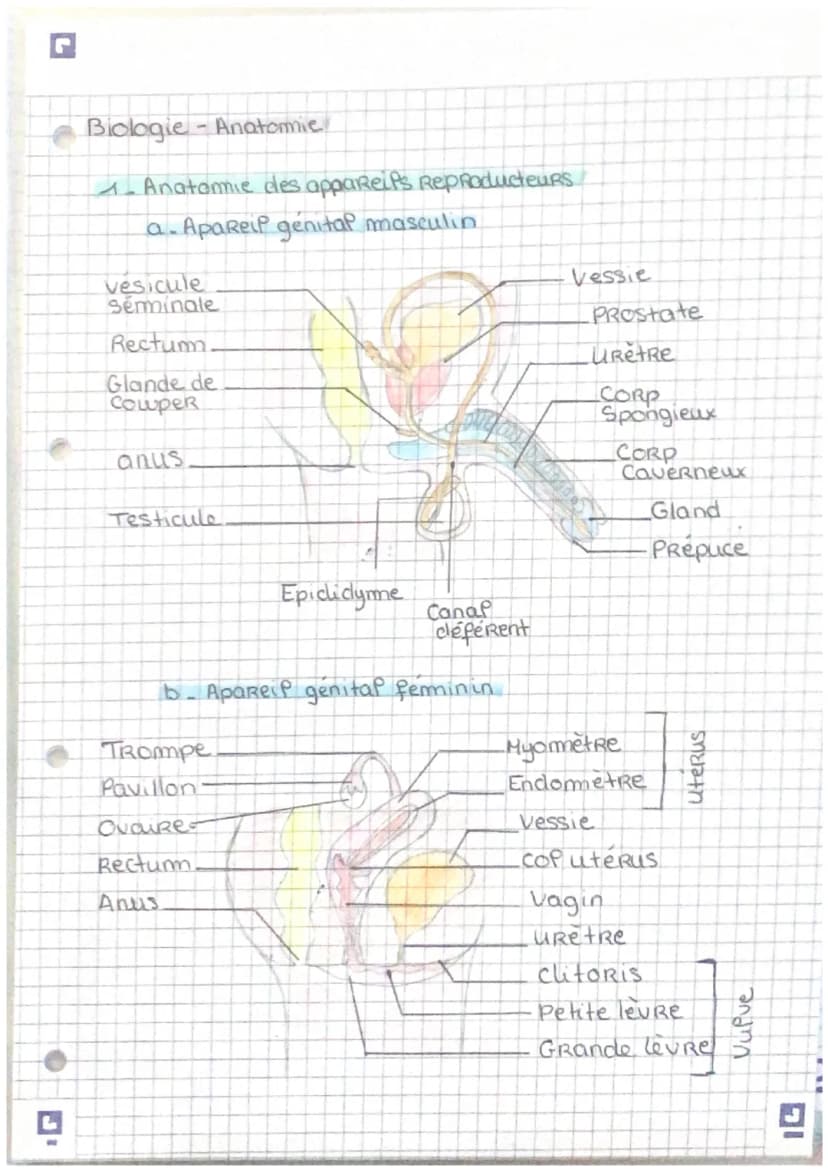 Biologie - Anatomie
1 - Anatomie des appareils reproducteurs
a - Apareil génital masculin
vésicule
séminale
Rectum
Glande de
Cowper
anus
Testicule
Epididyme
Canal
déférent
Vessie
Prostate
Urètre
Corp
Spongieux
Corp
Caverneux
Gland
Prépuce
b - Apareil génital féminin
Trompe
Pavillon
Ovaire
Rectum
Anus
Myomètre
Endomètre
utérus
Vessie
col utérus
Vagin
urètre
clitoris
Petite lèvre
Grande lèvre
Vulve